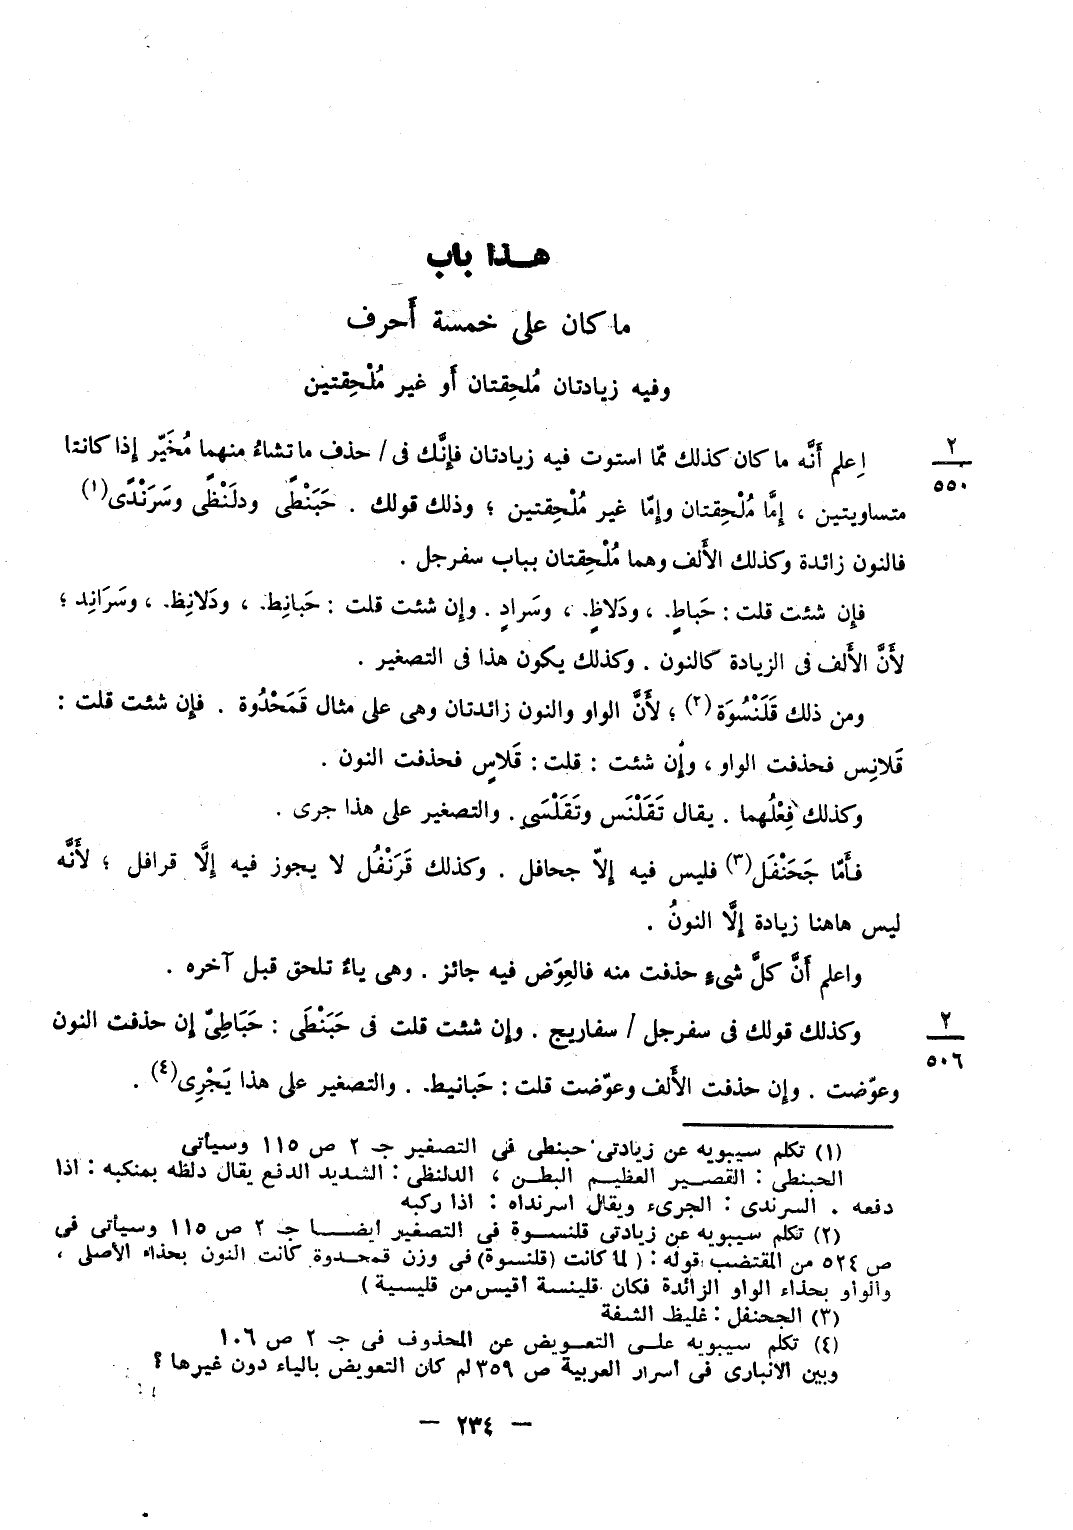 هـذا باب
ما كان على خمسة أَحرف
وفيه زيادتان مُلحِقتان أَو غير مُلْحِقتين
اِعلم أَنَّه ما كان كذلك ممّا استوت فيه زيادتان فإِنَّك فى / حذف ما تشاءُ منهما مُخَيّر إِذا كانتا
٢
٥٥٠
متساويتين ، إِمَّا مُلْحِقتان وإِمّا غير مُلْحِقتين ؛ وذلك قولك . حَبَنْطًى ودلَنْظًى وسَرَنْدًى(١)
فالنون زائدة وكذلك الأَلف وهما مُلْحِقتان بباب سفرجل .
فإِن شئت قلت : حَباطٍ ، ودَلاظٍ ، وسَرادٍ . وإِن شئت قلت : حَبانِط ، ودَلانِظ ، وسَرَانِد ؛
لأَنَّ الأَلف فى الزيادة كالنون . وكذلك يكون هذا فى التصغير .
ومن ذلك قَلَنْسُوَة(٢) ؛ لأَنَّ الواو والنون زائدتان وهى على مثال قَمَحْدُوة . فإِن شئت قلت :
قَلانِس فحذفت الواو ، وإِن شئت : قلت : قَلاسٍ فحذفت النون .
وكذلك فِعْلُهما . يقال تَقَلْنَس وتَقَلْسَى . والتصغير على هذا جرى .
فأَمّا جَحَنْفَل(٣) فليس فيه إِلاّ جحافل . وكذلك قَرَنْفُل لا يجوز فيه إِلَّا قرافل ؛ لأَنَّه
ليس هاهنا زيادة إِلَّا النونُ .
واعلم أَنَّ كلَّ شىءٍ حذفت منه فالعِوَض فيه جائز . وهى ياءٌ تلحق قبل آخره .
وكذلك قولك فى سفرجل / سفاريج . وإِن شئت قلت فى حَبَنْطَى : حَبَاطِىّ إِن حذفت النون
٢
٥٠٦
وعوّضت . وإِن حذفت الأَلف وعوّضت قلت : حَبانيط . والتصغير على هذا يَجْرِى(٤) .
(١) تكلم سيبويه عن زيادتى حبنطى فى التصغير جـ ٢ ص ١١٥ وسيأتى
الحبنطى : القصـير العظيـم البطـن ، الدلنظى : الشديد الدفع يقال دلظه بمنكبه : اذا
دفعه . السرندى : الجرىء ويقال اسرنداه : اذا ركبه
(٢) تكلم سيبويه عن زيادتى قلنسـوة فى التصغير ايضـا جـ ٢ ص ١١٥ وسيأتى فى
ص ٥٢٤ من المقتضب قوله : ( لما كانت (قلنسوة) فى وزن قمحـدوة كانت النون بحذاء الأصلى ،
والواو بحذاء الواو الزائدة فكان قلينسة أقيس من قليسية )
(٣) الجحنفل : غليظ الشفة
(٤) تكلم سيبويه علـى التعـويض عن المحذوف فى جـ ٢ ص ١٠٦
وبين الانبارى فى أسرار العربية ص ٣٥٩ لم كان التعويض بالياء دون غيرها ؟
— ٢٣٤ —